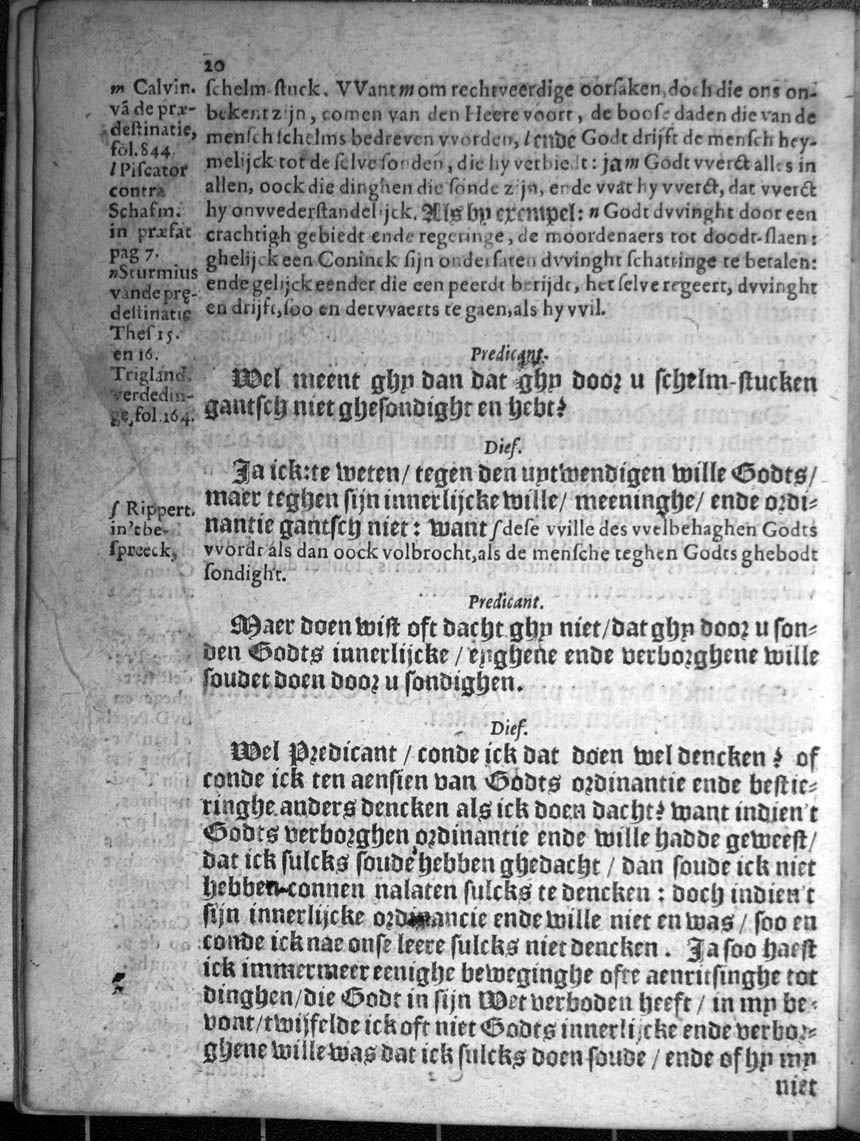 20
m Calvin.
vā de præ-
destinatie,
fol. 844
l Piscator
contra
Schafm.
in præfat
pag 7.
n Sturmius
vande prę-
destinatie
Thes 15.
en 16.
Trigland.
verdedin-
ge, fol. 164.
schelm-stuck. VVant m om rechtveerdige oorsaken, doch die ons on-
bekent zijn, comen van den Heere voort, de boose daden die van de
mensch schelms bedreven vvorden, l ende Godt drijft de mensch hey-
melijck tot de selve sonden, die hy verbiedt: ja m Godt vverct alles in
allen, oock die dinghen die sonde zijn, ende vvat hy vverct, dat vverct
hy onvvederstandelijck. Als by exempel: n Godt dvvinght door een
crachtigh gebiedt ende regeringe, de moordenaers tot doodt-slaen:
ghelijck een Coninck sijn ondersaten dvvinght schattinge te betalen:
ende gelijck eender die een peerdt berijdt, het selve regeert, dvvinght
en drijft, soo en dervvaerts te gaen, als hy vvil.
Predicant.
Wel meent ghy dan dat ghy door u schelm-stucken
gantsch niet ghesondight en hebt?
Dief.
Ja ick: te weten / tegen den uytwendigen wille Godts /
maer teghen sijn innerlijcke wille / meeninghe / ende ordi-
nantie gantsch niet: want ſ dese vville des vvelbehaghen Godts
vvordt als dan oock volbrocht, als de mensche teghen Godts ghebodt
sondight.
ſ Rippert.
in'tbe-
spreeck,
Predicant.
Maer doen wist oft dacht ghy niet / dat ghy door u son-
den Godts innerlijcke / eyghene ende verborghene wille
soudet doen door u sondighen.
Dief.
Wel Predicant / conde ick dat doen wel dencken? of
conde ick ten aensien van Godts ordinantie ende bestie-
ringhe anders dencken als ick doen dacht? want indien't
Godts verborghen ordinantie ende wille hadde geweest /
dat ick sulcks soude hebben ghedacht / dan soude ick niet
hebben connen nalaten sulcks te dencken: doch indien't
sijn innerlijcke ordinancie ende wille niet en was / soo en
conde ick nae onse leere sulcks niet dencken. Ja soo haest
ick immermeer eenighe beweginghe ofte aenritsinghe tot
dinghen / die Godt in sijn Wet verboden heeft / in my be-
vont / twijfelde ick oft niet Godts innerlijcke ende verbor-
ghene wille was dat ick sulcks doen soude / ende of hy my
niet